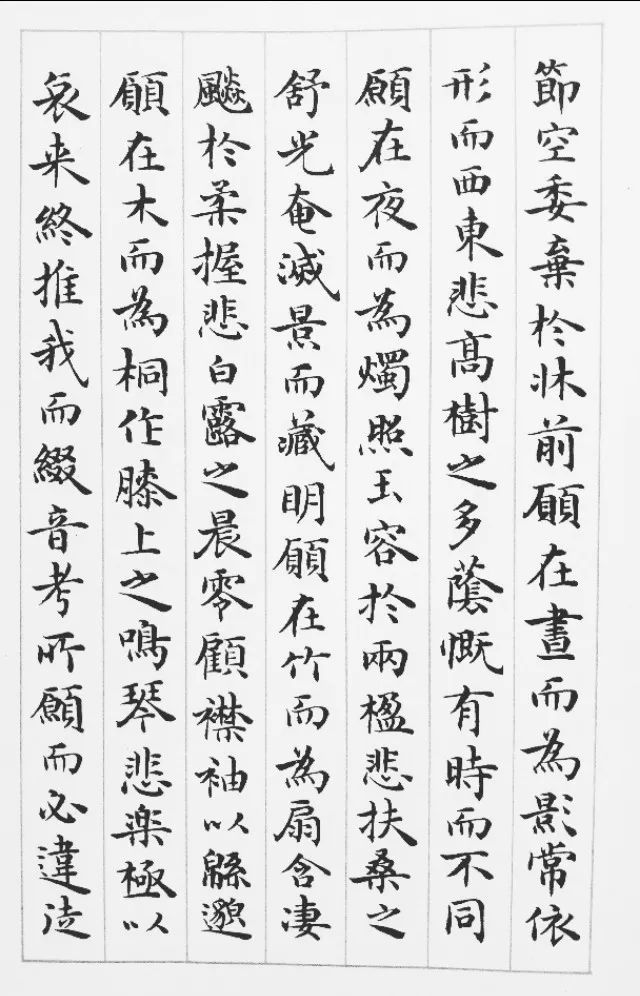 節空委棄於牀前願在晝而為影常依
形而西東悲髙樹之多蔭慨有時而不同
願在夜而為燭照玉容於兩楹悲扶桑之
舒光奄滅景而藏明願在竹而為扇含凄
飈於柔握悲白露之晨零顧襟袖以緜邈
願在木而為桐作膝上之鳴琴悲樂極以
哀来終推我而綴音考所願而必違徒